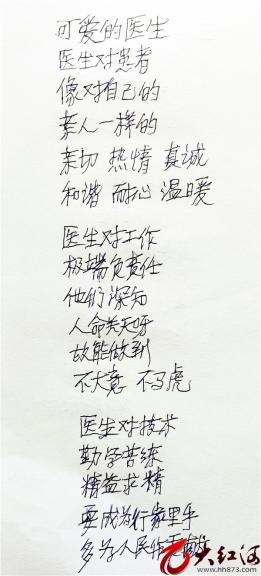 可爱的医生
医生对患者
像对自己的
亲人一样的
亲切 热情 真诚
和谐 耐心 温暖
医生对工作
极端负责任
他们深知
人命关天呀
故能做到
不大意 不马虎
医生对技术
勤学苦练
精益求精
要成为行家里手
多为人民作
大红河
www.hh873.com